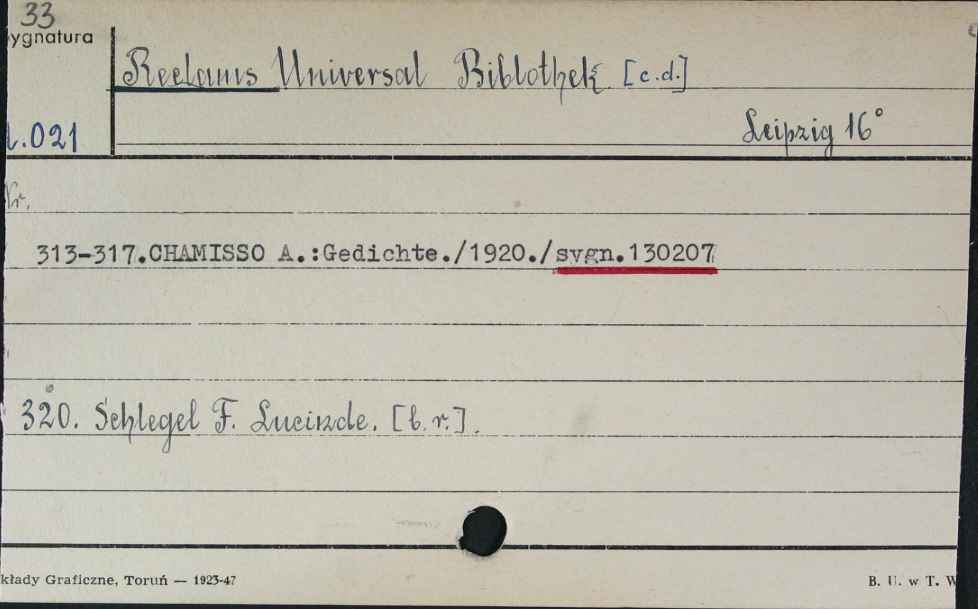 33
ygnatura
Reclams Universal Bibliothek [c.d.]
.021
Leipzig 16°
Nr.
313-317.CHAMISSO A.:Gedichte./1920./sygn.130207
320. Schlegel F. Lucinde. [b.r.].
kłady Graficzne, Toruń — 1923-47
B. U. w T. W